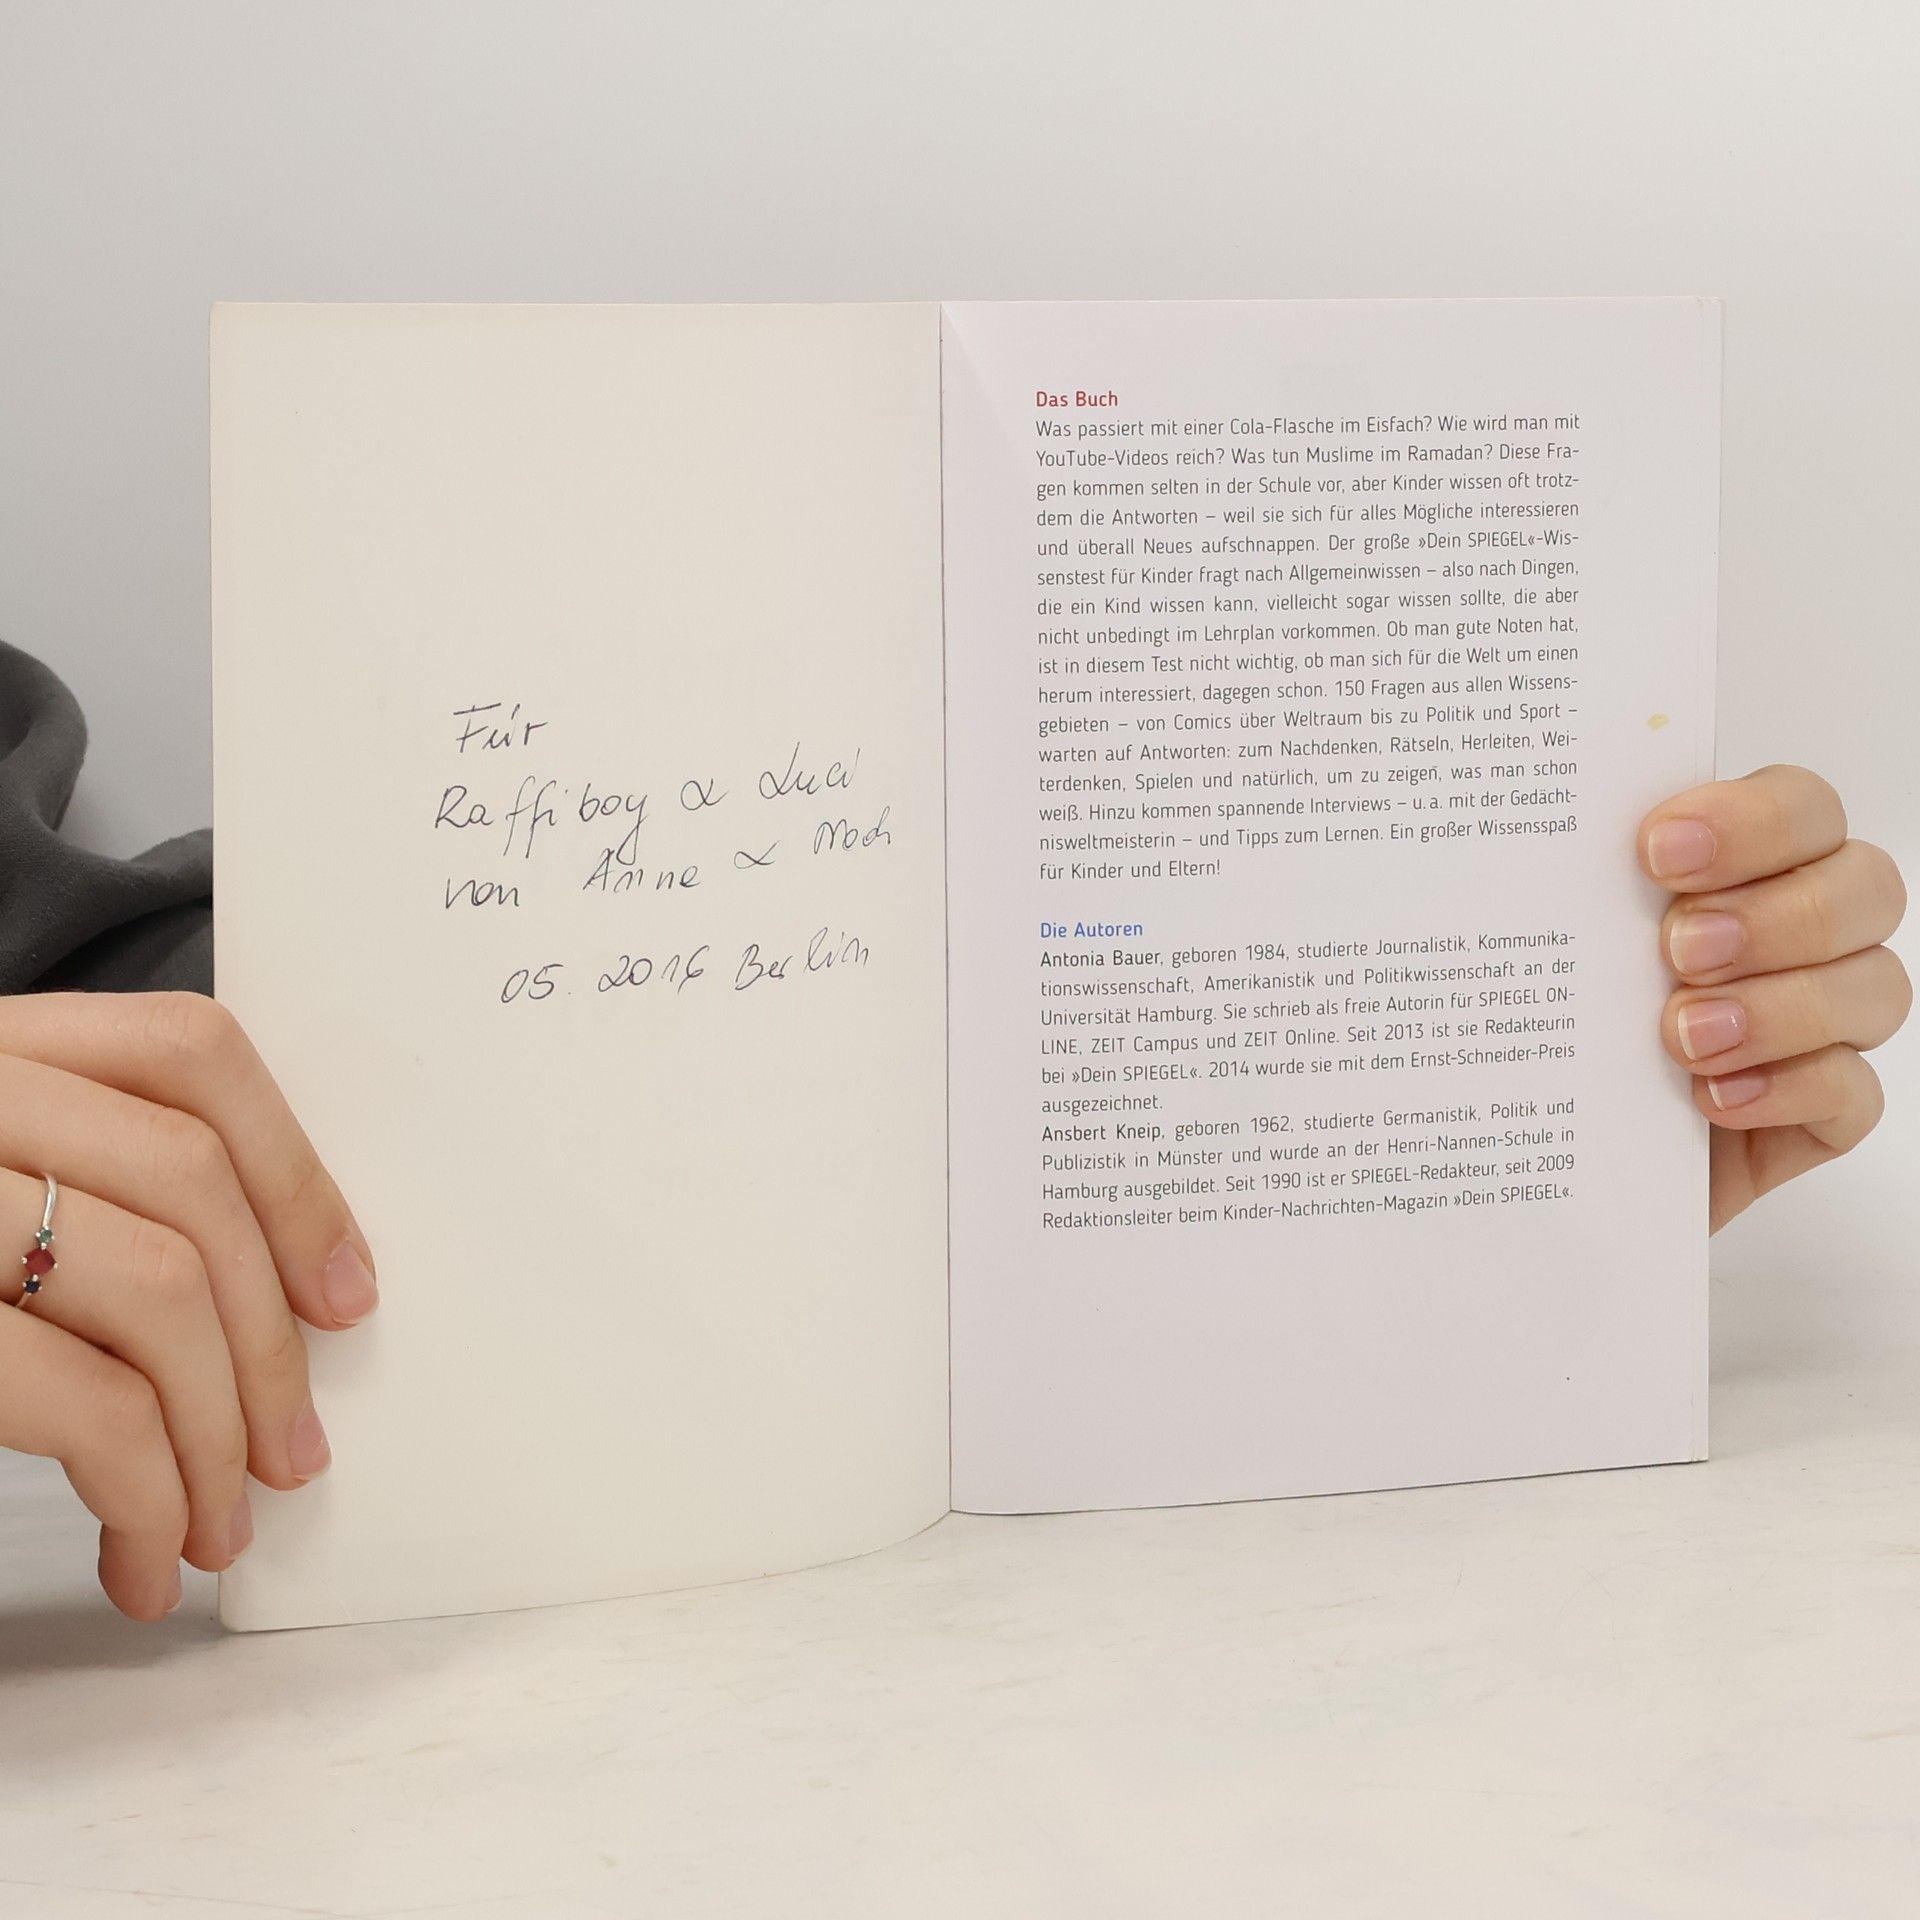 Für
Raffiboy & Luci
von Anne & Noah
05. 2016 Berlin
Das Buch
Was passiert mit einer Cola-Flasche im Eisfach? Wie wird man mit
YouTube-Videos reich? Was tun Muslime im Ramadan? Diese Fra-
gen kommen selten in der Schule vor, aber Kinder wissen oft trotz-
dem die Antworten – weil sie sich für alles Mögliche interessieren
und überall Neues aufschnappen. Der große »Dein SPIEGEL«-Wis-
senstest für Kinder fragt nach Allgemeinwissen – also nach Dingen,
die ein Kind wissen kann, vielleicht sogar wissen sollte, die aber
nicht unbedingt im Lehrplan vorkommen. Ob man gute Noten hat,
ist in diesem Test nicht wichtig, ob man sich für die Welt um einen
herum interessiert, dagegen schon. 150 Fragen aus allen Wissens-
gebieten – von Comics über Weltraum bis zu Politik und Sport –
warten auf Antworten: zum Nachdenken, Rätseln, Herleiten, Wei-
terdenken, Spielen und natürlich, um zu zeigen, was man schon
weiß. Hinzu kommen spannende Interviews – u. a. mit der Gedächt-
nisweltmeisterin – und Tipps zum Lernen. Ein großer Wissensspaß
für Kinder und Eltern!
Die Autoren
Antonia Bauer, geboren 1984, studierte Journalistik, Kommunika-
tionswissenschaft, Amerikanistik und Politikwissenschaft an der
Universität Hamburg. Sie schrieb als freie Autorin für SPIEGEL ON-
LINE, ZEIT Campus und ZEIT Online. Seit 2013 ist sie Redakteurin
bei »Dein SPIEGEL«. 2014 wurde sie mit dem Ernst-Schneider-Preis
ausgezeichnet.
Ansbert Kneip, geboren 1962, studierte Germanistik, Politik und
Publizistik in Münster und wurde an der Henri-Nannen-Schule in
Hamburg ausgebildet. Seit 1990 ist er SPIEGEL-Redakteur, seit 2009
Redaktionsleiter beim Kinder-Nachrichten-Magazin »Dein SPIEGEL«.